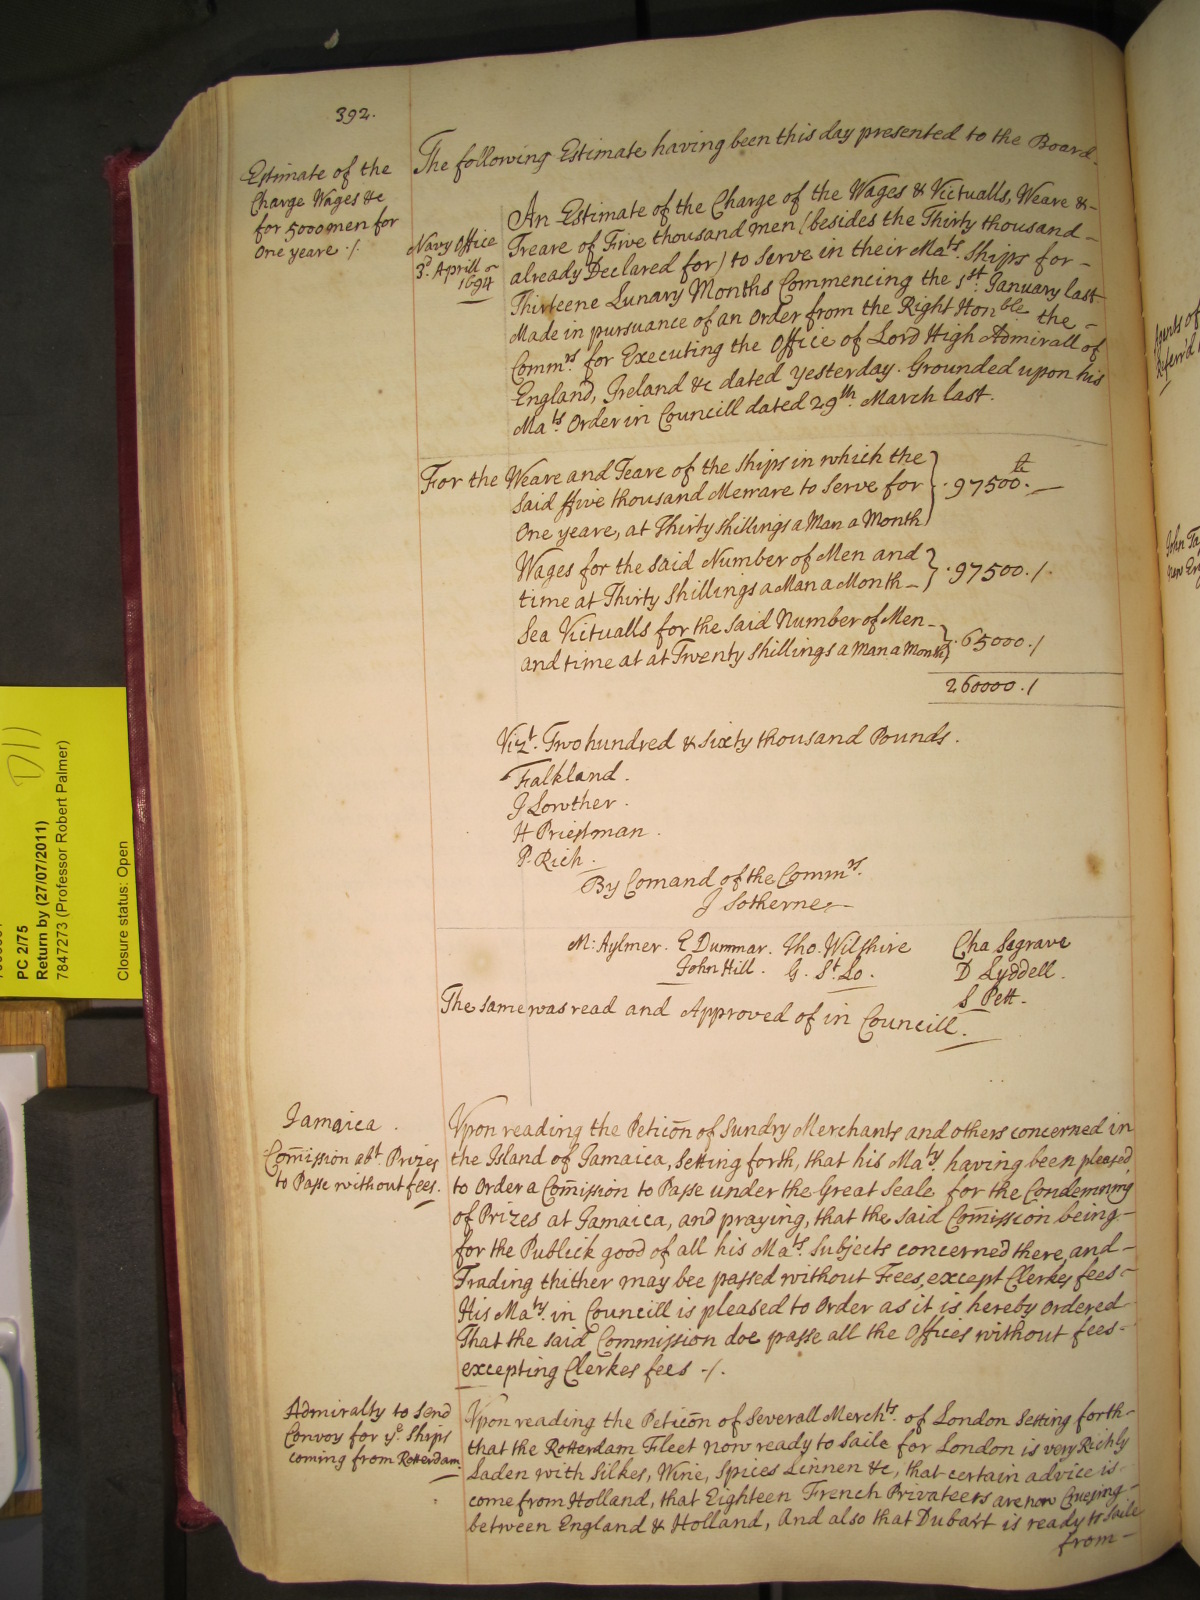 392.
Estimate of the
Charge Wages &c
for 5000 men for
one yeare ./.
The following Estimate having been this day presented to the Board.
Navy Office
3d. Aprill
1694
An Estimate of the Charge of the Wages & Victualls, Weare &
Teare of Five thousand men (besides the Thirty thousand
already Declared for) to serve in their Mats. Ships for
Thirteene Lunary Months Commencing the 1st. January last
Made in pursuance of an Order from the Right Honble the
Commrs. for Executing the Office of Lord High Admirall of
England, Ireland &c dated yesterday. Grounded upon his
Mats. Order in Councill dated 29th. March last.
For the Weare and Teare of the Ships in which the
said ffive thousand Men are to Serve for
One yeare, at Thirty shillings a Man a Month } . 97500. —
Wages for the said Number of Men and
time at Thirty Shillings a Man a Month } . 97500. /.
Sea Victualls for the said Number of Men
and time at at Twenty shillings a Man a Month } . 65000. /
260000. /
Vizt. Two hundred & sixty thousand Pounds.
Falkland.
J Lowther.
H Priestman.
P. Rich.
By Comand of the Commrs.
J Sotherne
M: Aylmer. E Dummar. Tho. Wilshire Cha Segrave
John Hill. G. St. Lo. D Lyddell.
S Pett.
The same was read and Approved of in Councill.
Jamaica.
Com̃ission abt. Prizes
to Passe without fees.
Vpon reading the Peticõn of Sundry Merchants and others concerned in
the Island of Jamaica, Setting forth, that his Maty. having been pleased
to Order a Com̃ission to Passe under the Great Seale for the Condemning
of Prizes at Jamaica, and praying, that the said Com̃ission being
for the Publick good of all his Mats. Subjects concerned there, and
Trading thither may bee passed without Fees, except Clerkes fees
His Maty. in Councill is pleased to Order as it is hereby Ordered
That the said Commission doe passe all the Offices without fees
excepting Clerkes fees ./.
Admiralty to send
Convoy for ye. Ships
coming from Rotterdam.
Vpon reading the Peticõn of Severall Merchts. of London Setting forth
that the Rotterdam Fleet now ready to Saile for London is very Richly
Laden with Silkes, Wine, Spices Linnen &c, that certain advice is
come from Holland, that Eighteen French Privateers are now Cruesing
between England & Holland, And also that Dubart is ready to Saile
from
PC 2/75
Return by (27/07/2011)
7847273 (Professor Robert Palmer)
Closure status: Open